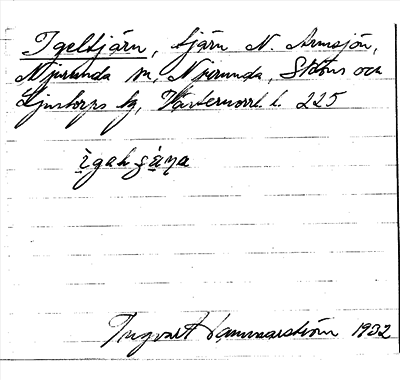 Igeltjärn, tjärn N. Armsjön,
Njurunda sn, Njurunda, Sköns och
Ljustorps tg, Västernorrl. l. 225
Ingvart Hammarström 1932